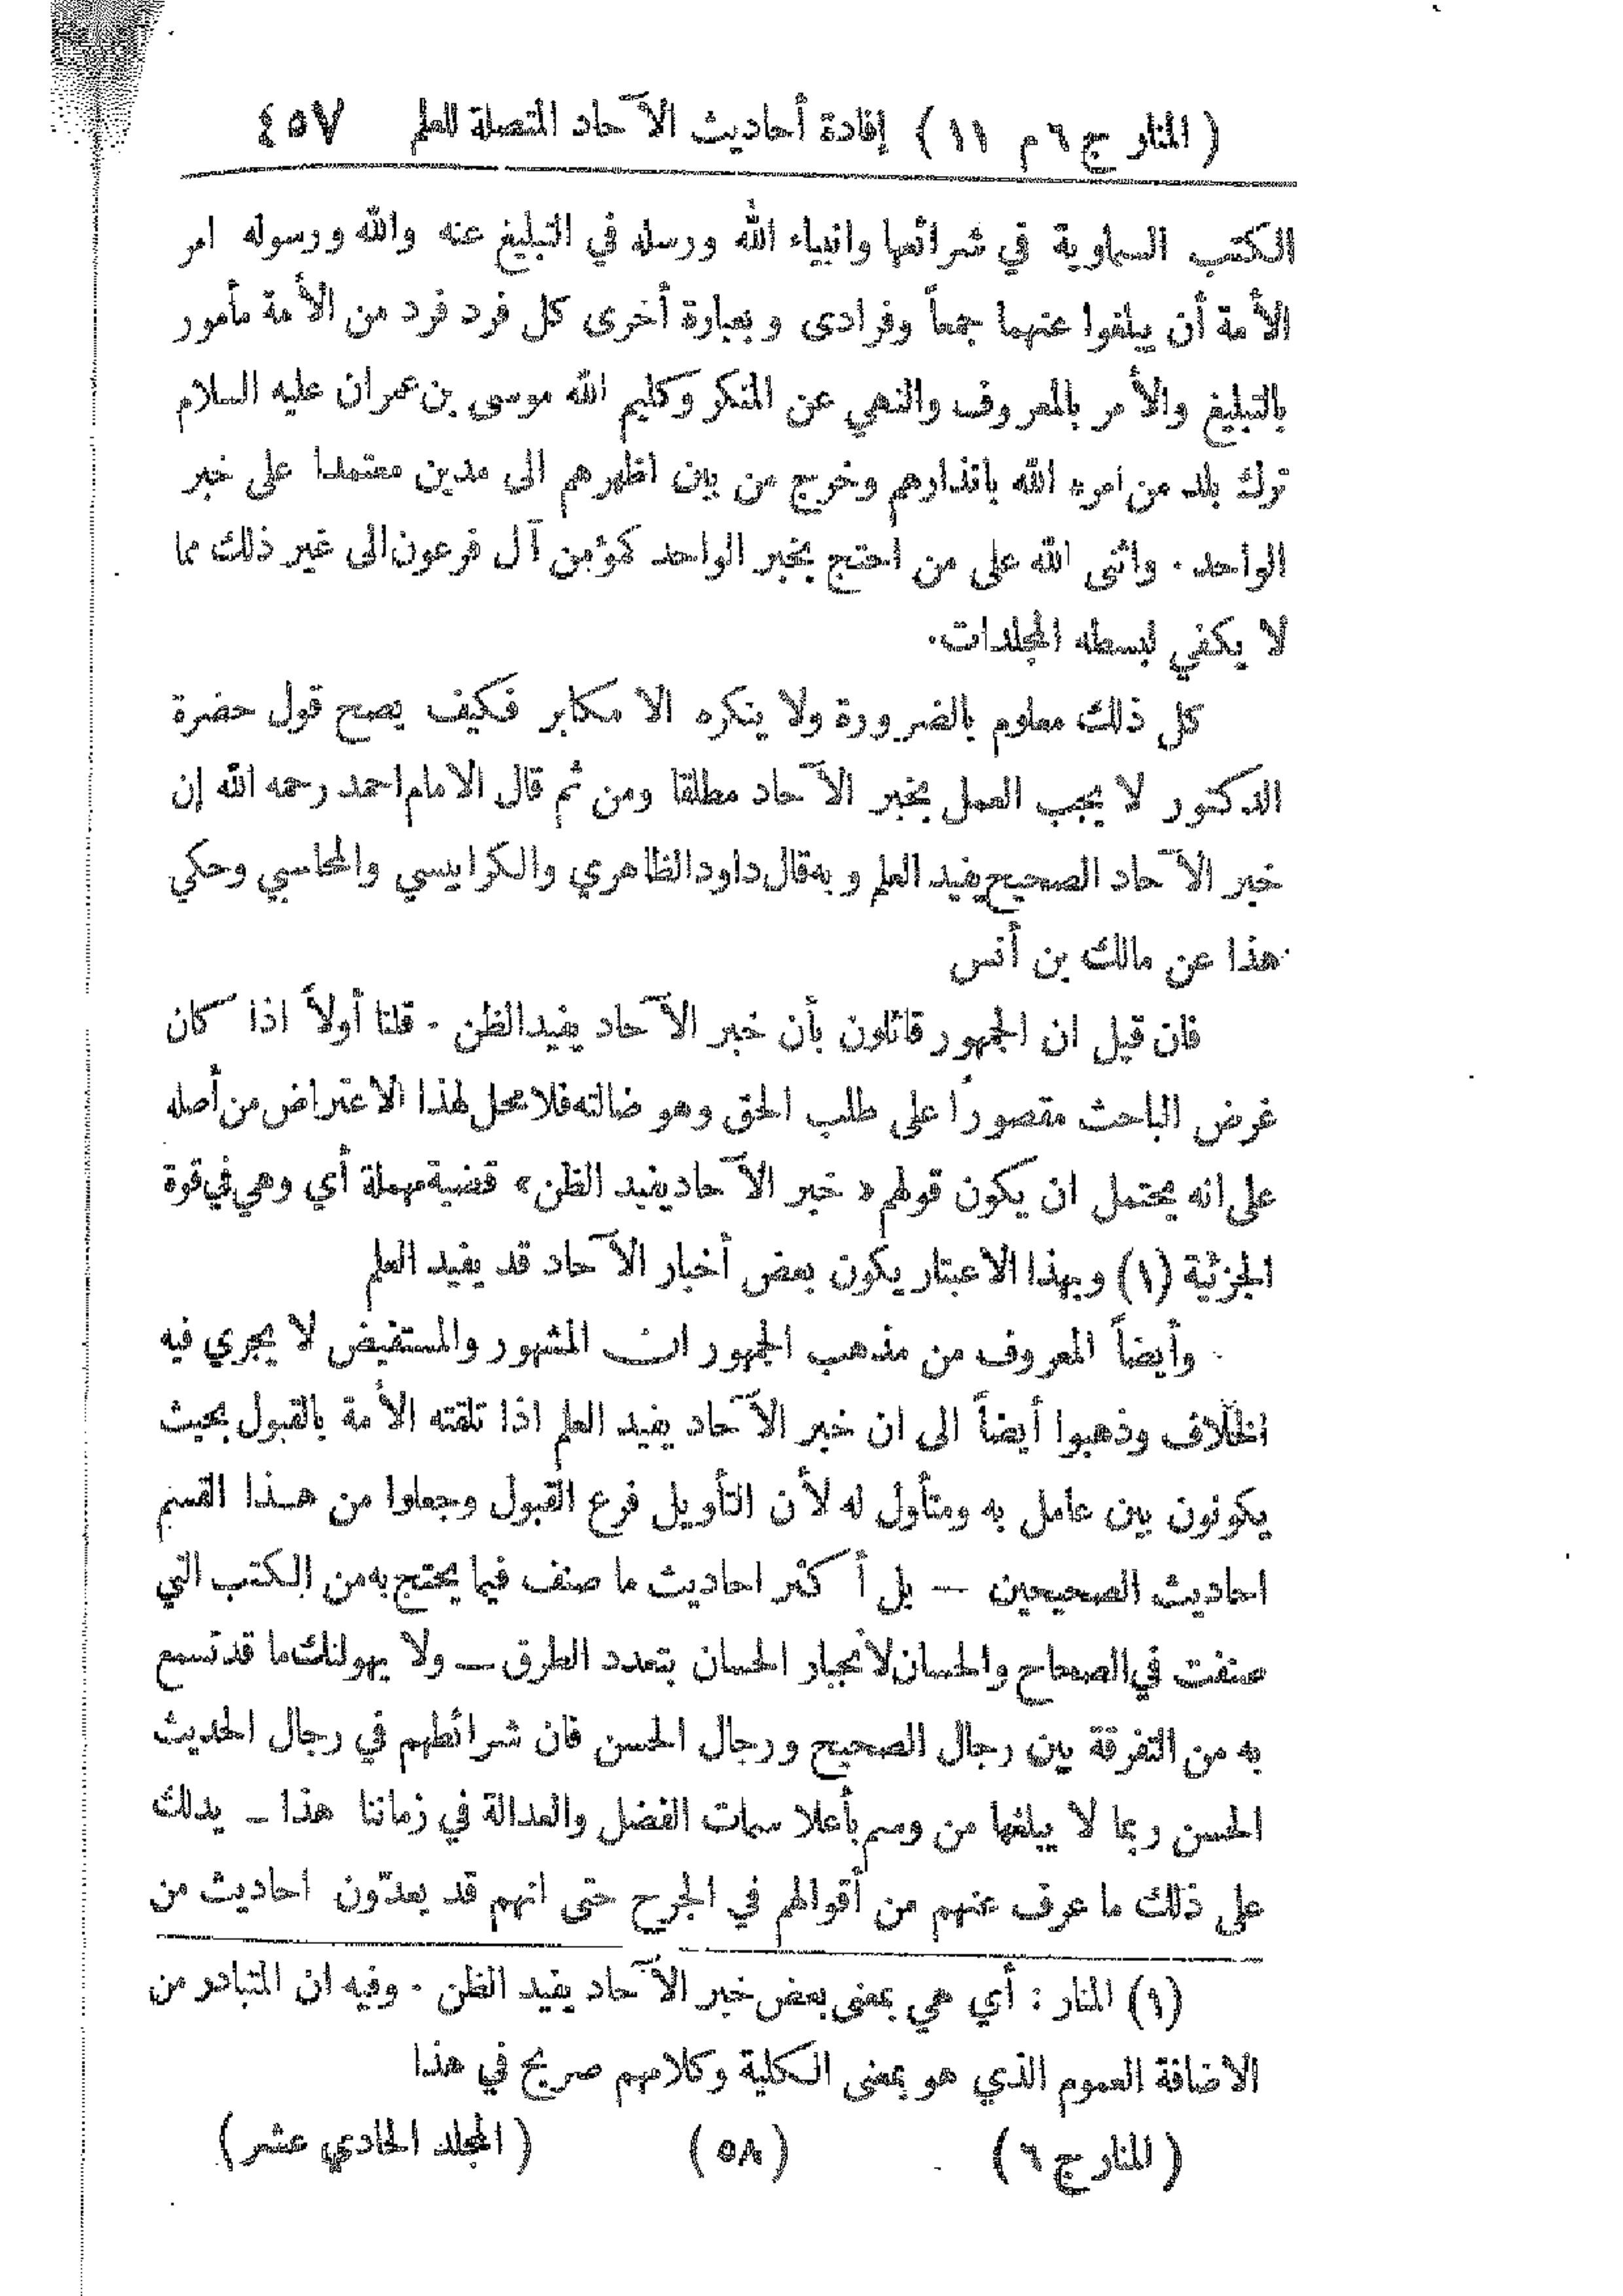 ( المنار ج ٦ م ١١ ) إفادة أحاديث الآحاد المتصلة للعلم ٤٥٧
الكتب السماوية في شرائعها وانبياء الله ورسله في التبليغ عنه والله ورسوله امر
الأمة أن يبلغوا عنهما جمعاً وفرادى وبعبارة أخرى كل فرد فرد من الأمة مأمور
بالتبليغ والأمر بالمعروف والنهي عن المنكر وكليم الله موسى بن عمران عليه السلام
ترك بلد من امره الله بانذارهم وخرج من بين اظهرهم الى مدين معتمدا على خبر
الواحد . واثنى الله على من احتج بخبر الواحد كمؤمن آل فرعون الى غير ذلك مما
لا يكفي لبسطه المجلدات .
كل ذلك معلوم بالضرورة ولا ينكره الا مكابر فكيف يصح قول حضرة
الدكتور لا يجب العمل بخبر الآحاد مطلقا ومن ثم قال الامام احمد رحمه الله إن
خبر الآحاد الصحيح يفيد العلم وبه قال داود الظاهري والكرابيسي والمحاسبي وحكي
هذا عن مالك بن أنس
فان قيل ان الجمهور قائلون بأن خبر الآحاد يفيد الظن . قلنا أولاً اذا كان
غرض الباحث مقصوراً على طلب الحق وهو ضالته فلا محل لهذا الاعتراض من أصله
على انه يحتمل ان يكون قولهم « خبر الآحاد يفيد الظن » قضية مهملة أي وهي في قوة
الجزئية (١) وبهذا الاعتبار يكون بعض أخبار الآحاد قد يفيد العلم
وأيضاً المعروف من مذهب الجمهور ان المشهور والمستفيض لا يجري فيه
الخلاف وذهبوا أيضاً الى ان خبر الآحاد يفيد العلم اذا تلقته الأمة بالقبول بحيث
يكونون بين عامل به ومتأول له لأن التأويل فرع القبول وجعلوا من هذا القسم
احاديث الصحيحين — بل أكثر احاديث ما صنف فيما يحتج به من الكتب التي
صنفت في الصحاح والحسان لانجبار الحسان بتعدد الطرق — ولا يهولنك ما قد تسمع
به من التفرقة بين رجال الصحيح ورجال الحسن فان شرائطهم في رجال الحديث
الحسن ربما لا يبلغها من وسم بأعلا سمات الفضل والعدالة في زماننا هذا — يدلك
على ذلك ما عرف عنهم من أقوالهم في الجرح حتى انهم قد يعدّون احاديث من
(١) المنار : أي هي بمعنى بعض خبر الآحاد يفيد الظن . وفيه ان المتبادر من
الاضافة العموم الذي هو بمعنى الكلية وكلامهم صريح في هذا
( المنار ج ٦ ) ( ٥٨ ) ( المجلد الحادي عشر )